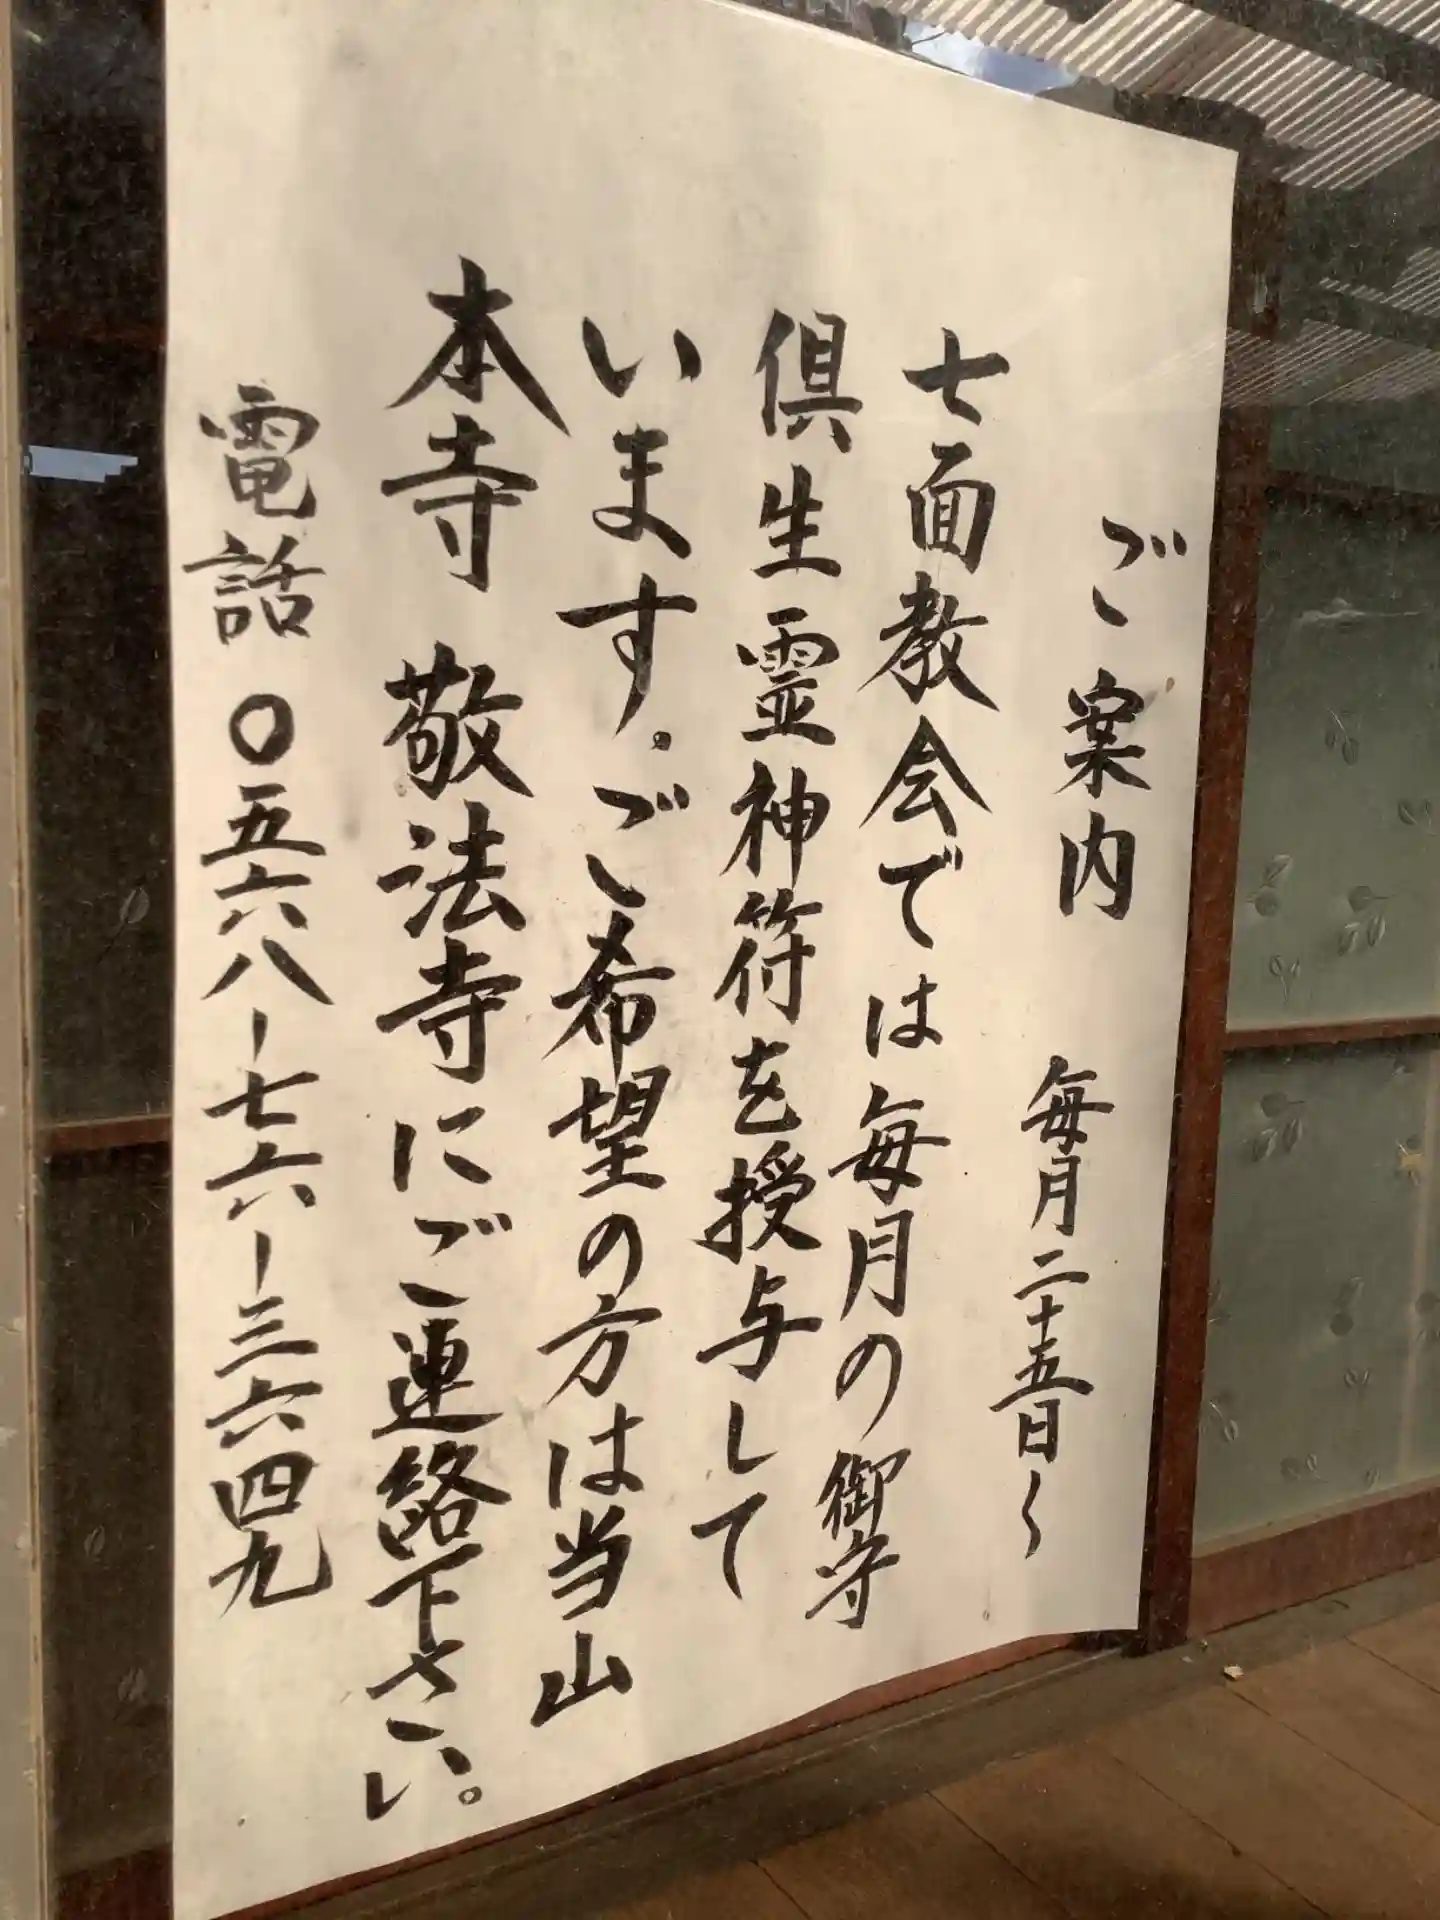 ご案内　毎月二十五日〜
七面教会では毎月の御守
倶生霊神符を授与して
います。ご希望の方は当山
本寺　敬法寺にご連絡下さい。
電話　〇五六八-七六-三六四九